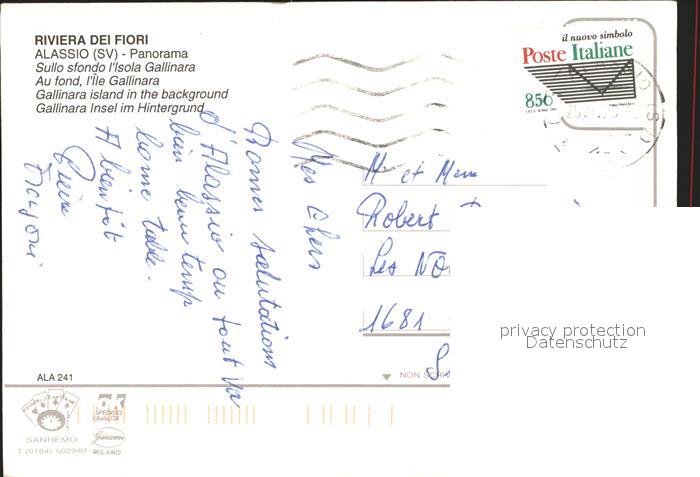 RIVIERA DEI FIORI
ALASSIO (SV) - Panorama
Sullo sfondo l'Isola Gallinara
Au fond, l'Île Gallinara
Gallinara island in the background
Gallinara Insel im Hintergrund
il nuovo simbolo
Poste Italiane
850
Mes chers
Bonnes salutations
d'Alassio ou tout va
bien beau temp
bonne table.
A bientôt
M. et Mme
Robert
Les
1681
S
privacy protection
Datenschutz
NON SCRIV
ALA 241
SANREMO
T. (0184) 502940
OK
SPECIAL
QUALITÀ
Garami
MILANO